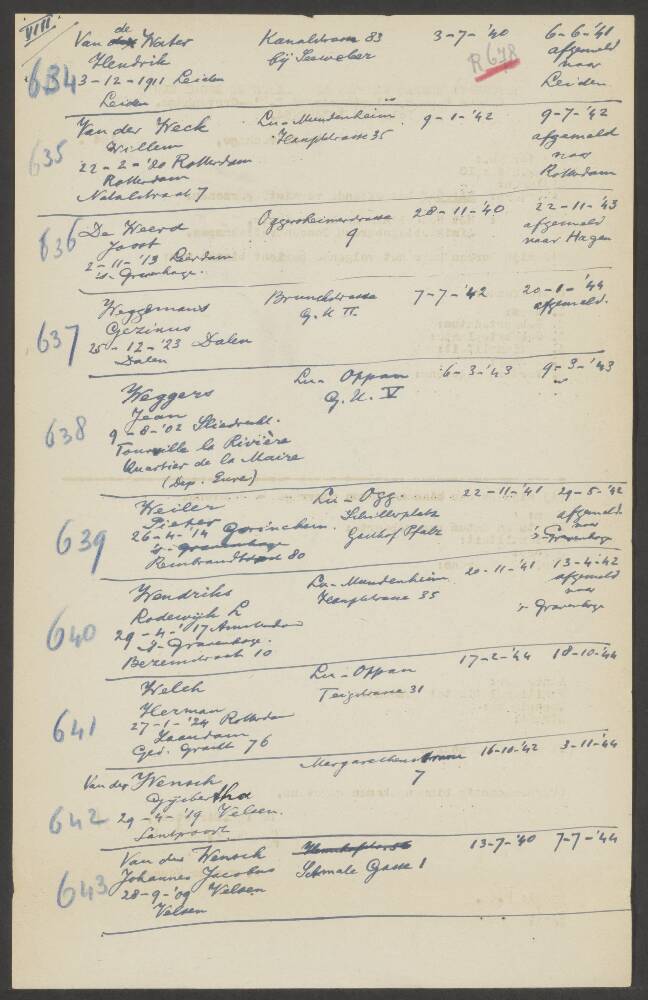 VIII.
Van de Water Kanalstrasse 83 3-7-'40 6-6-'41
Hendrik bij Seeweber R 678 afgemeld
634 3-12-1911 Leiden naar
Leiden Leiden
Van der Weck Lu-Mundenheim 9-1-'42 9-7-'42
Willem Hauptstrasse 35 afgemeld
635 22-2-'20 Rotterdam naar
Rotterdam Rotterdam
Natalstraat 7
636 De Weerd Oggersheimerstrasse 28-11-'40 22-11-'43
Joost 9 afgemeld
2-11-'13 Leerdam naar Hagen
's-Gravenhage.
Weggemans Brunckstrasse 7-7-'42 20-1-'44
Gezinus G. U. II. afgemeld.
637 25-12-'23 Dalen
Dalen
Weggers Lu-Oppau 6-3-'43 9-3-'43
Jean G. U. V
638 9-8-'02 Sliedrecht.
Tourville la Rivière
Quartier de la Maire
(Dep. Eure)
Weiler Lu-Ogg 22-11-'41 29-5-'42
Pieter Schillerplatz afgemeld
639 26-4-'14 Gorinchem. Gasthof Pfalz naar
's-Gravenhage 's-Gravenhage
Rembrandtstraat 80
Wendriks Lu-Mundenheim 20-11-'41 13-4-'42
Rodewijk L Hauptstrasse 35 afgemeld
640 29-4-'17 Amsterdam naar
's-Gravenhage. 's-Gravenhage
Bezemstraat 10
Welch Lu-Oppau 17-2-'44 18-10-'44
Herman 31
641 27-1-'24 Rotterdam
Zaandam
Ged. Gracht 76
Van der Wensch Margarethenstrasse 16-10-'42 3-11-'44
Gijsbertha 7
642 29-4-'19 Velsen.
Santpoort
Van der Wensch 13-7-'40 7-7-'44
Johannes Jacobus Schmale Gasse 1
643 28-9-'09 Velsen
Velsen